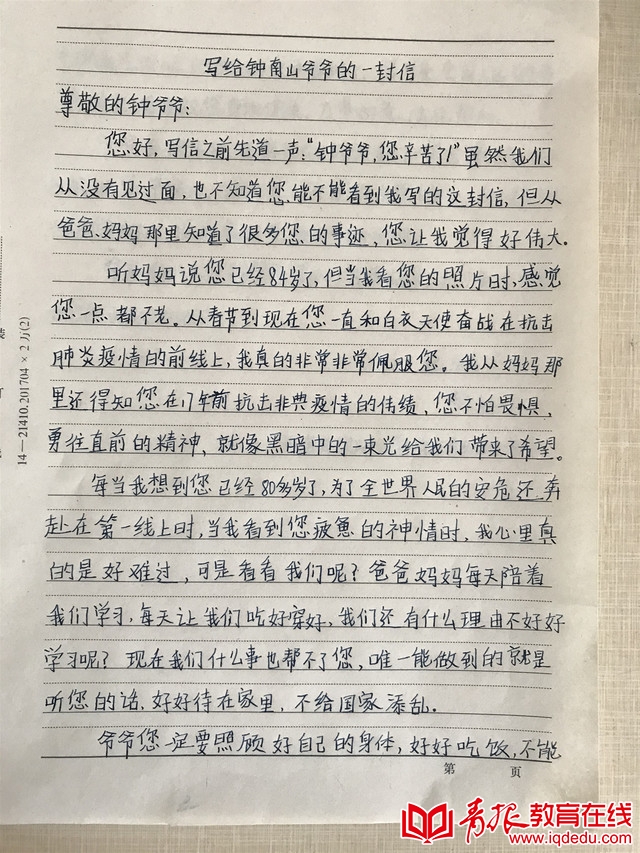 写给钟南山爷爷的一封信
尊敬的钟爷爷：
您好，写信之前先道一声："钟爷爷，您辛苦了！"虽然我们
从没有见过面，也不知道您能不能看到我写的这封信，但从
爸爸、妈妈那里知道了很多您的事迹，您让我觉得好伟大。
听妈妈说您已经84岁了，但当我看您的照片时，感觉
您一点都不老。从春节到现在您一直和白衣天使奋战在抗击
肺炎疫情的前线上，我真的非常非常佩服您。我从妈妈那
里还得知您在17年前抗击非典疫情的伟绩，您不怕畏惧，
勇往直前的精神，就像黑暗中的一束光给我们带来了希望。
每当我想到您已经80多岁了，为了全世界人民的安危还奔
赴在第一线上时，当我看到您疲惫的神情时，我心里真
的是好难过，可是看看我们呢？爸爸妈妈每天陪着
我们学习，每天让我们吃好穿好，我们还有什么理由不好好
学习呢？现在我们什么事也帮不了您，唯一能做到的就是
听您的话，好好待在家里，不给国家添乱。
爷爷您一定要照顾好自己的身体，好好吃饭，不能
第 页
14—21410.201704×2万(2)
装
订
青报教育在线
www.iqdedu.com